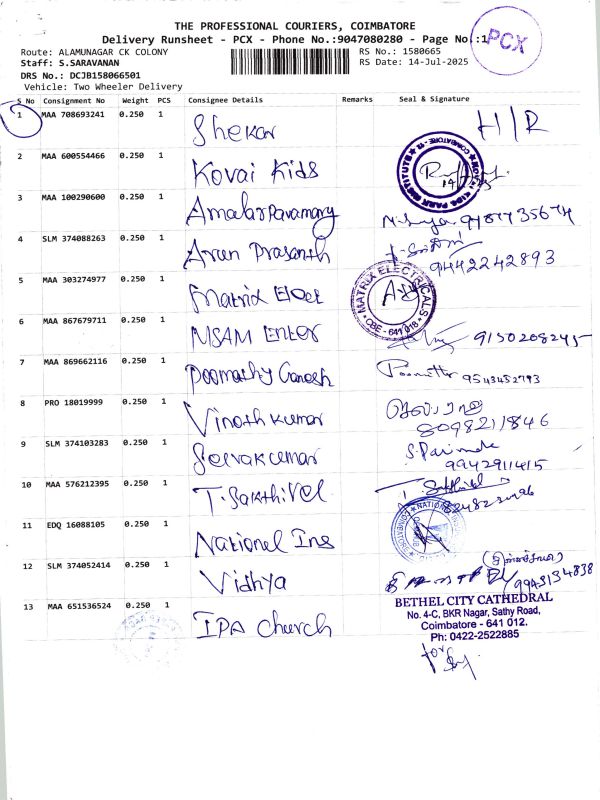 THE PROFESSIONAL COURIERS, COIMBATORE
Delivery Runsheet - PCX - Phone No.:9047080280 - Page No.:1
PCX
Route: ALAMUNAGAR CK COLONY
RS No.: 1580665
Staff: S.SARAVANAN
RS Date: 14-Jul-2025
DRS No.: DCJB158066501
Vehicle: Two Wheeler Delivery
S No Consignment No Weight PCS Consignee Details Remarks Seal & Signature
1 MAA 708693241 0.250 1 Shekar H/R
2 MAA 600554466 0.250 1 Kovai Kids
3 MAA 100290600 0.250 1 Amalorpavamary
4 SLM 374088263 0.250 1 Arun Prasanth 9442242893
5 MAA 303274977 0.250 1 Matrix Elect
MATRIX ELECTRICALS
CBE - 641 018
6 MAA 867679711 0.250 1 MSAM Enter 9150208245
7 MAA 869662116 0.250 1 Poomathy Ganesh 9543452793
8 PRO 18019999 0.250 1 Vinoth Kumar 8098211846
9 SLM 374103283 0.250 1 Selvakumar 9942911415
10 MAA 576212395 0.250 1 T. Sakthivel
11 EDQ 16088105 0.250 1 National Ins
12 SLM 374052414 0.250 1 Vidhya
13 MAA 651536524 0.250 1 IPA Church
BETHEL CITY CATHEDRAL
No. 4-C, BKR Nagar, Sathy Road,
Coimbatore - 641 012.
Ph: 0422-2522885
for